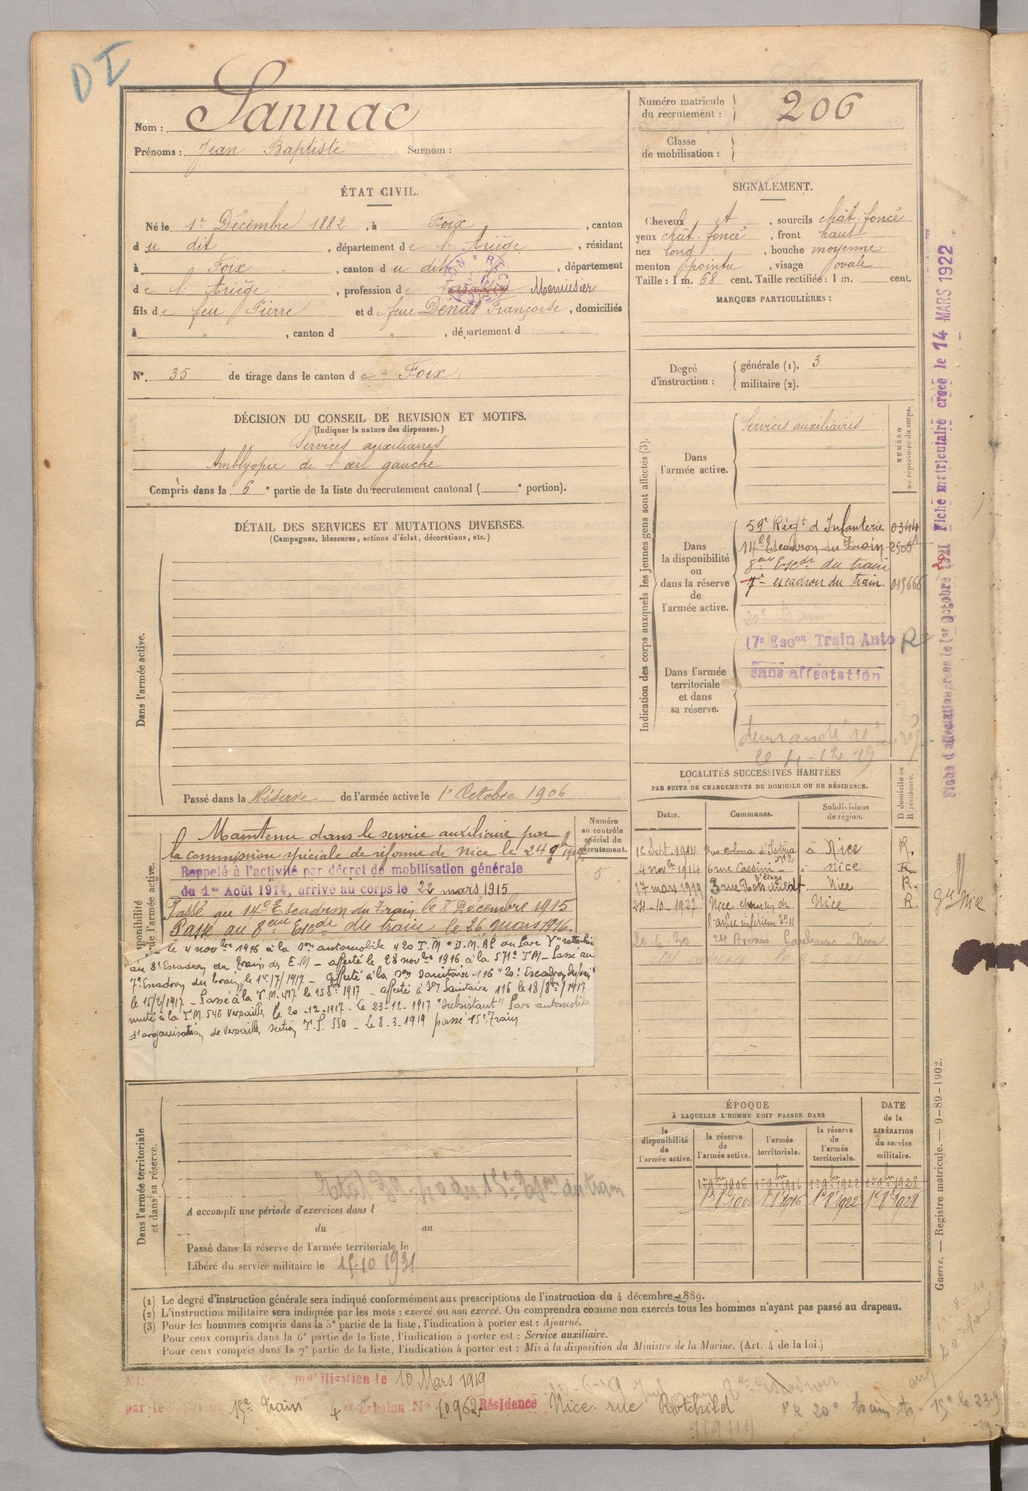 D I
Nom : Sannac
Prénoms : Jean Baptiste Surnom :
Numéro matricule du recrutement : 206
Classe de mobilisation :
ÉTAT CIVIL.
Né le 1er Décembre 1882, à Foix, canton
du dit, département de l'Ariège, résidant
à Foix, canton du dit, département
de l'Ariège, profession de Menuisier
fils de feu Pierre et de feue Dénat Françoise, domiciliés
à " , canton d " , département d
N°. 35 de tirage dans le canton de Foix
SIGNALEMENT.
Cheveux et, sourcils chât. foncé
yeux chât. foncé, front haut
nez long, bouche moyenne
menton pointu, visage ovale
Taille : 1 m. 68 cent. Taille rectifiée : 1 m. cent.
MARQUES PARTICULIÈRES :
Degré d'instruction : générale (1). 3
militaire (2).
DÉCISION DU CONSEIL DE REVISION ET MOTIFS.
(Indiquer la nature des dispenses.)
Services auxiliaires
Amblyopie de l'œil gauche
Compris dans la 6e partie de la liste du recrutement cantonal ( e portion).
DÉTAIL DES SERVICES ET MUTATIONS DIVERSES.
(Campagnes, blessures, actions d'éclat, décorations, etc.)
Dans l'armée active.
Passé dans la Réserve de l'armée active le 1er Octobre 1906
Indication des corps auxquels les jeunes gens sont affectés (3).
NUMÉRO au répertoire du corps.
Dans l'armée active.
Services auxiliaires
Dans la disponibilité ou dans la réserve de l'armée active.
59e Régt d'Infanterie 0344
14e Escadron du Train 2505
8ème Escdr du train
7e escadron du train 013666
Dans l'armée territoriale et dans sa réserve.
17e Escon Train Auto R
sans affectation
le 4-12-29
LOCALITÉS SUCCESSIVES HABITÉES
PAR SUITE DE CHANGEMENTS DE DOMICILE OU DE RÉSIDENCE.
Dates. Communes. Subdivisions de région. D domicile ou R résidence.
16 Sept. 1914 à Nice R.
4 nov. 1914 6 rue Cassini Nice R
17 mars 1919 3 rue Rothschild Nice R.
24-10-1927 Nice chemin de Nice R
l'arbre inférieur
20-6-30 24 Avenue Nice
Numéro au contrôle spécial du recrutement.
5
disponibilité
de l'armée active.
Maintenu dans le service auxiliaire par
la commission spéciale de réforme de Nice le 24 9bre 1914
Rappelé à l'activité par décret de mobilisation générale
du 1er Août 1914, arrivé au corps le 22 mars 1915
Passé au 14e Escadron du Train le 8 Décembre 1915
Passé au 8ème Escdr du train le 26 mars 1916
le 4 novbre 1916 à la Son automobile 420 T.M. D.M.AP au Parc
au 8e Escadron du Train des E.M - affecté le 28 novbre 1916 à la 571e TM - Passé au
7e Escadron du train le 1er/7/1917 - affecté à la Son Sanitaire 116 "20e Escadron du train"
le 15/7/1917 - Passé à la T.M. le 15 1917 - affecté à Son Sanitaire 116 le 18/8bre/1917
muté à la T.M. 546 Versailles le 20-12-1917 - le 23-12-1917 "Subsistant" Parc automobile
d'organisation de Versailles section T.P. 550 - le 8-3-1919 passé 15e Train
Dans l'armée territoriale et dans sa réserve.
A accompli une période d'exercices dans l
du au
Passé dans la réserve de l'armée territoriale le
Libéré du service militaire le 15-10 1931
ÉPOQUE
À LAQUELLE L'HOMME DOIT PASSER DANS
la disponibilité de l'armée active. la réserve de l'armée active. l'armée territoriale. la réserve de l'armée territoriale. DATE de la LIBÉRATION du service militaire.
1er 9bre 1906 1er 9bre 1916 1er 9bre 1922 1er 9bre 1928
1er 8bre 1906 1er 8bre 1916 1er 8bre 1922 1er 8bre 1928
(1) Le degré d'instruction générale sera indiqué conformément aux prescriptions de l'instruction du 4 décembre 1889.
(2) L'instruction militaire sera indiquée par les mots : exercé ou non exercé. On comprendra comme non exercés tous les hommes n'ayant pas passé au drapeau.
(3) Pour les hommes compris dans la 5e partie de la liste, l'indication à porter est : Ajourné.
Pour ceux compris dans la 6e partie de la liste, l'indication à porter est : Service auxiliaire.
Pour ceux compris dans la 7e partie de la liste, l'indication à porter est : Mis à la disposition du Ministre de la Marine. (Art. 4 de la loi.)
mobilisation le 10 Mars 1919
par le 15e Train 4e Échelon N° 10962 Résidence Nice rue Rotchild
Fiche matriculaire créée le 14 MARS 1922
Guerre. — Registre matricule. — 9-89-1902.